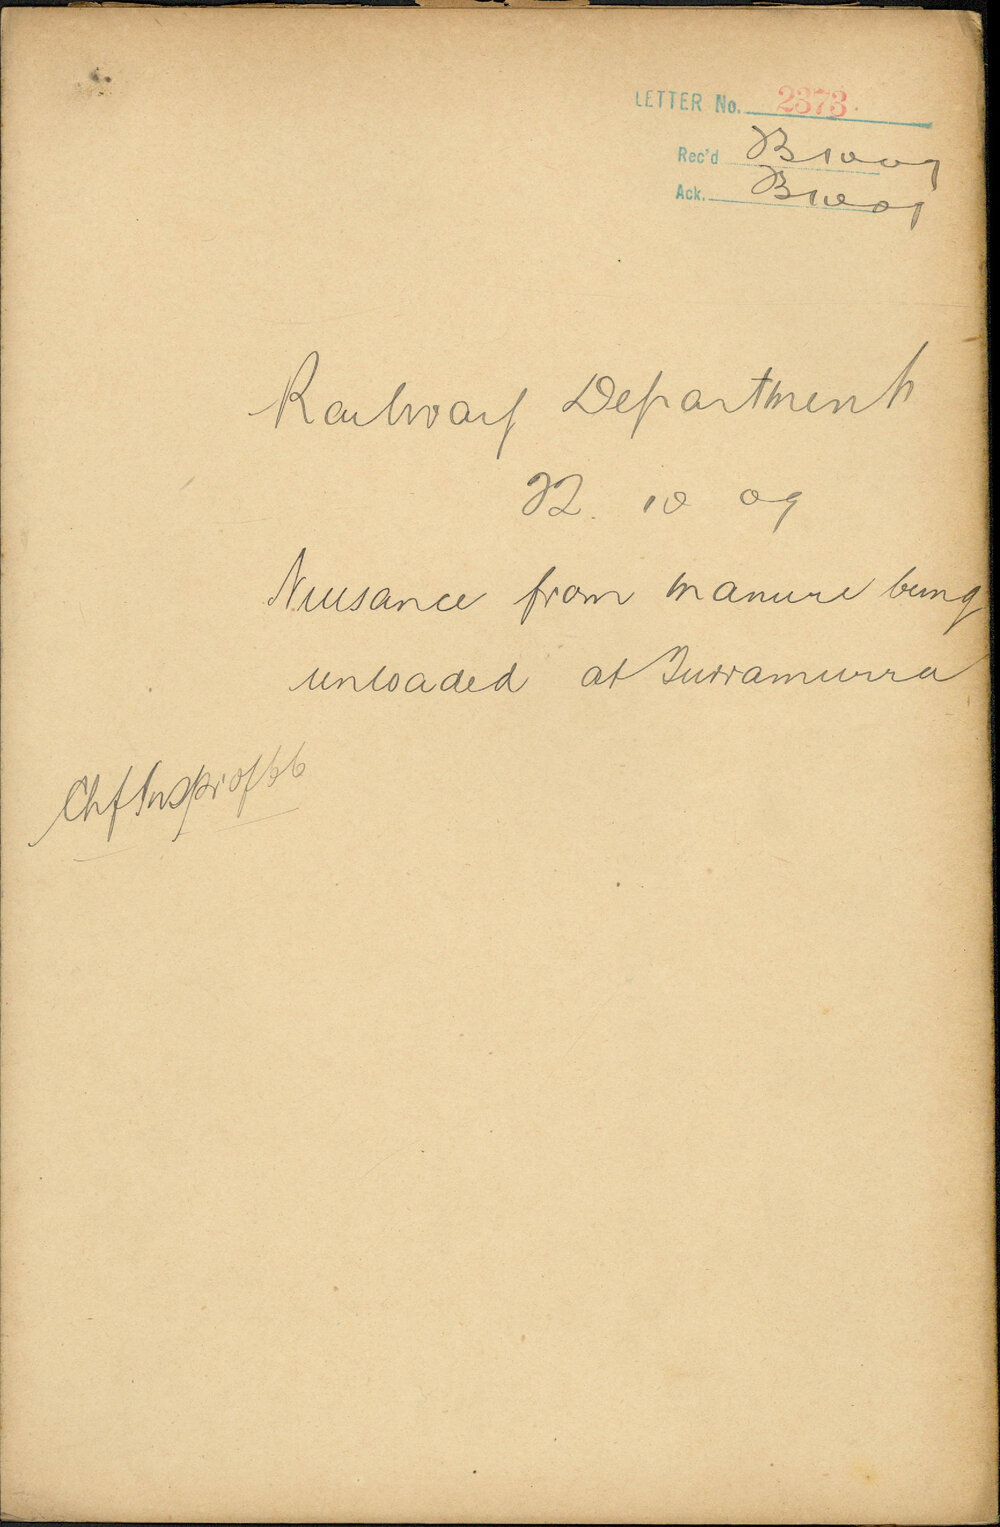 LETTER No. 2373
Rec'd 23 10 09
Ack. 23 10 09
Railway Department
22. 10 09
Nuisance from manure being
unloaded at Turramurra
Chf Inspr of